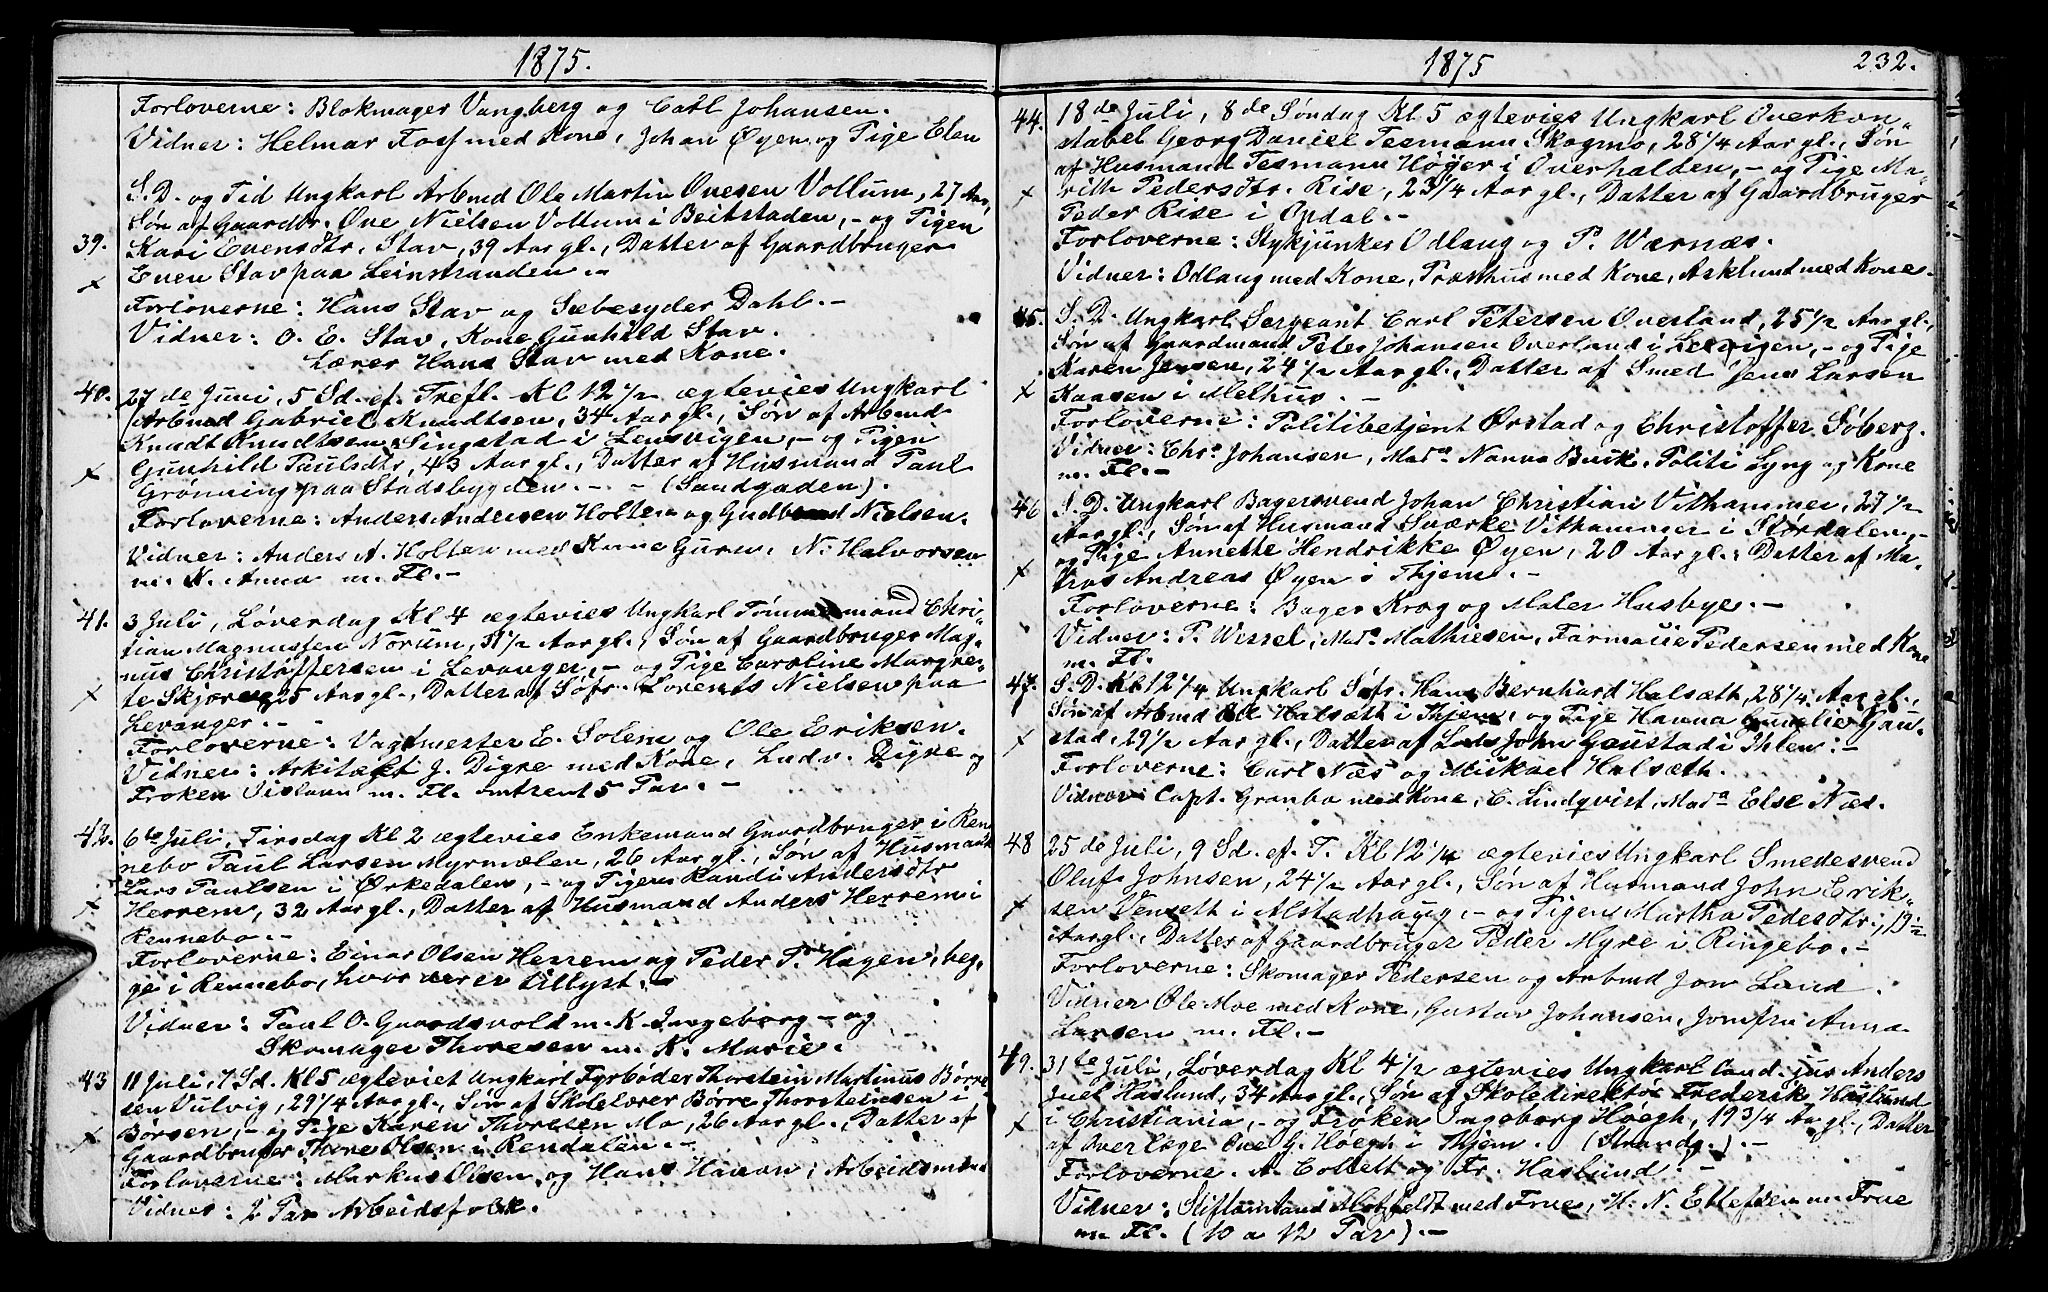 1875.
Forloverne: Blokmager Vangberg og Carl Johansen.
Vidner: Helmar Foss med Kone, Johan Øyen og Pige Elen
39. S. D. og Tid Ungkarl Arbmd Ole Martin Ovesen Vollum, 27 Aar,
Søn af Gaardbr. Ove Nielsen Vollum i Beitstaden, - og Pigen
Kari Evensdtr. Stav, 39 Aar gl., Datter af Gaardbruger
Even Stav paa Leinstranden. -
Forloverne: Hans Stav og Sæbesyder Dahl. -
Vidner: O. E. Stav, Kone Gunhild Stav.
Lærer Hans Stav med Kone.
40. 27de Juni, 5 Sd. ef. Trefl. Kl 12 1/2 ægtevies Ungkarl
Arbmd Gabriel Knudtsen, 34 Aar gl., Søn af Arbmd
Knudt Knudtsen Singstad i Lensvigen, - og Pigen
Gunhild Paulsdtr, 43 Aar gl., Datter af Husmand Paul
Grønning paa Stadsbygden. - - (Sandgaden).
Forloverne: Anders Andersen Holten og Gudbrand Nielsen.
Vidner: Anders A. Holten med Kone Guru, N. Halvorsen
m. K. Anna m. Fl. -
41. 3 Juli, Løverdag Kl 4 ægtevies Ungkarl Tømmermand Chri-
stian Magnussen Norum, 31 1/2 Aar gl., Søn af Gaardbruger Mag-
nus Christoffersen i Levanger, - og Pige Caroline Margre-
te Skjerve, 25 Aar gl., Datter af Søfr. Lorents Nielsen paa
Levanger. -
Forloverne: Vagtmester E. Solem og Ole Eriksen.
Vidner: Arkitækt J. Digre med Kone, Ludv. Digre og
Frøken m. Fl. omtrent 5 Par. -
42. 6te Juli, Tirsdag Kl 2 ægtevies Enkemand Gaardbruger i Ren-
nebo Paul Larsen Myrmælen, 26 Aar gl., Søn af Husmand
Lars Paulsen i Ørkedalen, - og Pigen Randi Andersdtr
Herrem, 32 Aar gl., Datter af Husmand Anders Herrem i
Rennebo. -
Forloverne: Einar Olsen Herrem og Peder P. Hagen, beg-
ge i Rennebo, hvor der er tillyst. -
Vidner: Paul O. Gaardsvold m. K. Ingeborg - og
Skomager Thoresen m. K. Marie.
43 11 Juli, 7 Sd. Kl 5 ægteviet Ungkarl Fyrbøder Thorstein Martinus Børre-
sen Vulvig, 29 1/4 Aar gl., Søn af Skolelærer Børre Thorsteinsen i
Børsen, - og Pige Karen Thoresen Mo, 26 Aar gl., Datter af
Gaardbruger Thore Olsen i Rendalen. -
Forloverne: Markus Olsen og Hans Hanon, Arbeidsmænd
Vidner: 2 Par Arbeidsfolk.
1875
232.
44. 18de Juli, 8de Søndag Kl 5 ægtevies Ungkarl Overkon-
stabel Georg Daniel Tesmann Skogmo, 28 1/4 Aar gl., Søn
af Husmand Tesmann Høyer i Overhalden, - og Pige Ma-
rith Pedersdtr. Rise, 23 1/4 Aar gl., Datter af Gaardbruger
Peder Rise i Opdal. -
Forloverne: Stykjunker Odlaug og P. Wærnæs.
Vidner: Odlaug med Kone, Præsthus med Kone, Asklund med Kone.
45. S. D. Ungkarl Sergeant Carl Petersen Overland, 25 1/2 Aar gl.,
Søn af Gaardmand Peter Johansen Overland i Lexvigen, - og Pige
Karen Jensen, 24 1/2 Aar gl., Datter af Smed Jens Larsen
Kaasen i Melhus. -
Forloverne: Politibetjent Ørstad og Christoffer Søberg.
Vidner: Chr. Johansen, Mada Nanna Buck, Politi Lyng og Kone
m. Fl. -
46 S. D. Ungkarl Bagersvend Johan Christian Vithammer, 27 1/2
Aar gl., Søn af Husmand Sværke Vithammer i Størdalen, -
og Pige Annette Hendrikke Øyen, 20 Aar gl., Datter af Ma-
tros Andreas Øyen i Thjem. -
Forloverne: Bager Krog og Maler Husbye. -
Vidner: P. Wessel, Mada Mathiesen, Farmacie Pedersen med Kone
m. Fl.
47. S. D. Kl 12 1/4 Ungkarl Søfr. Hans Bernhard Halsæth, 28 1/4 Aar gl.,
Søn af Arbmd Ole Halsæth i Thjem, og Pige Hanna Emelie Gau-
stad, 29 1/2 Aar gl., Datter af Lods John Gaustad i Ihlen. -
Forloverne: Carl Næs og Mickael Halsæth.
Vidner: Capt. Granbo med Kone, C. Lindqvist, Mada Else Næs.
48 25de Juli, 9 Sd. ef. T. Kl 12 1/4 ægtevies Ungkarl Smedesvend
Oluf Johnsen, 24 1/2 Aar gl., Søn af Husmand John Erik-
sen Venseth i Alstadhaug, - og Pigen Martha Pedesdtr,
Aar gl., Datter af Gaardbruger Peder Myre i Ringebo. -
Forloverne: Skomager Pedersen og Arbmd Jon Lund.
Vidner Ole Moe med Kone, Gustav Johansen, Jomfru Anna
Larsen m. Fl. -
49. 31te Juli, Løverdag Kl 4 1/2 ægtevies Ungkarl Cand. jur Anders
Juel Haslund, 34 Aar gl., Søn af Skoledirektør Frederik Haslund
i Christiania, - og Frøken Ingeborg Høegh, 19 3/4 Aar gl., Datter
af Overlæge Ove G. Høegh i Thjem. (Strandg.). -
Forloverne. A. Collett og Fr. Haslund. -
Vidner: Stiftamtmand Motzfeldt med Frue, H. N. Ellefsen m. Frue
m. Fl. (10 a 12 Par). -